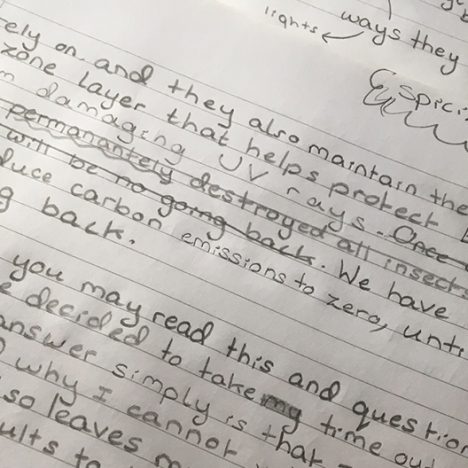 lights
ways they
Spici
ely on and they also maintain the
zone layer that helps protect
damaging UV rays. Once
permanantely destroyed all insect
will be no going back. We have
duce carbon emissions to zero, unti
g back.
you may read this and questio
decided to take my time ou
answer simply is that
why I cannot
so leaves m
ults to